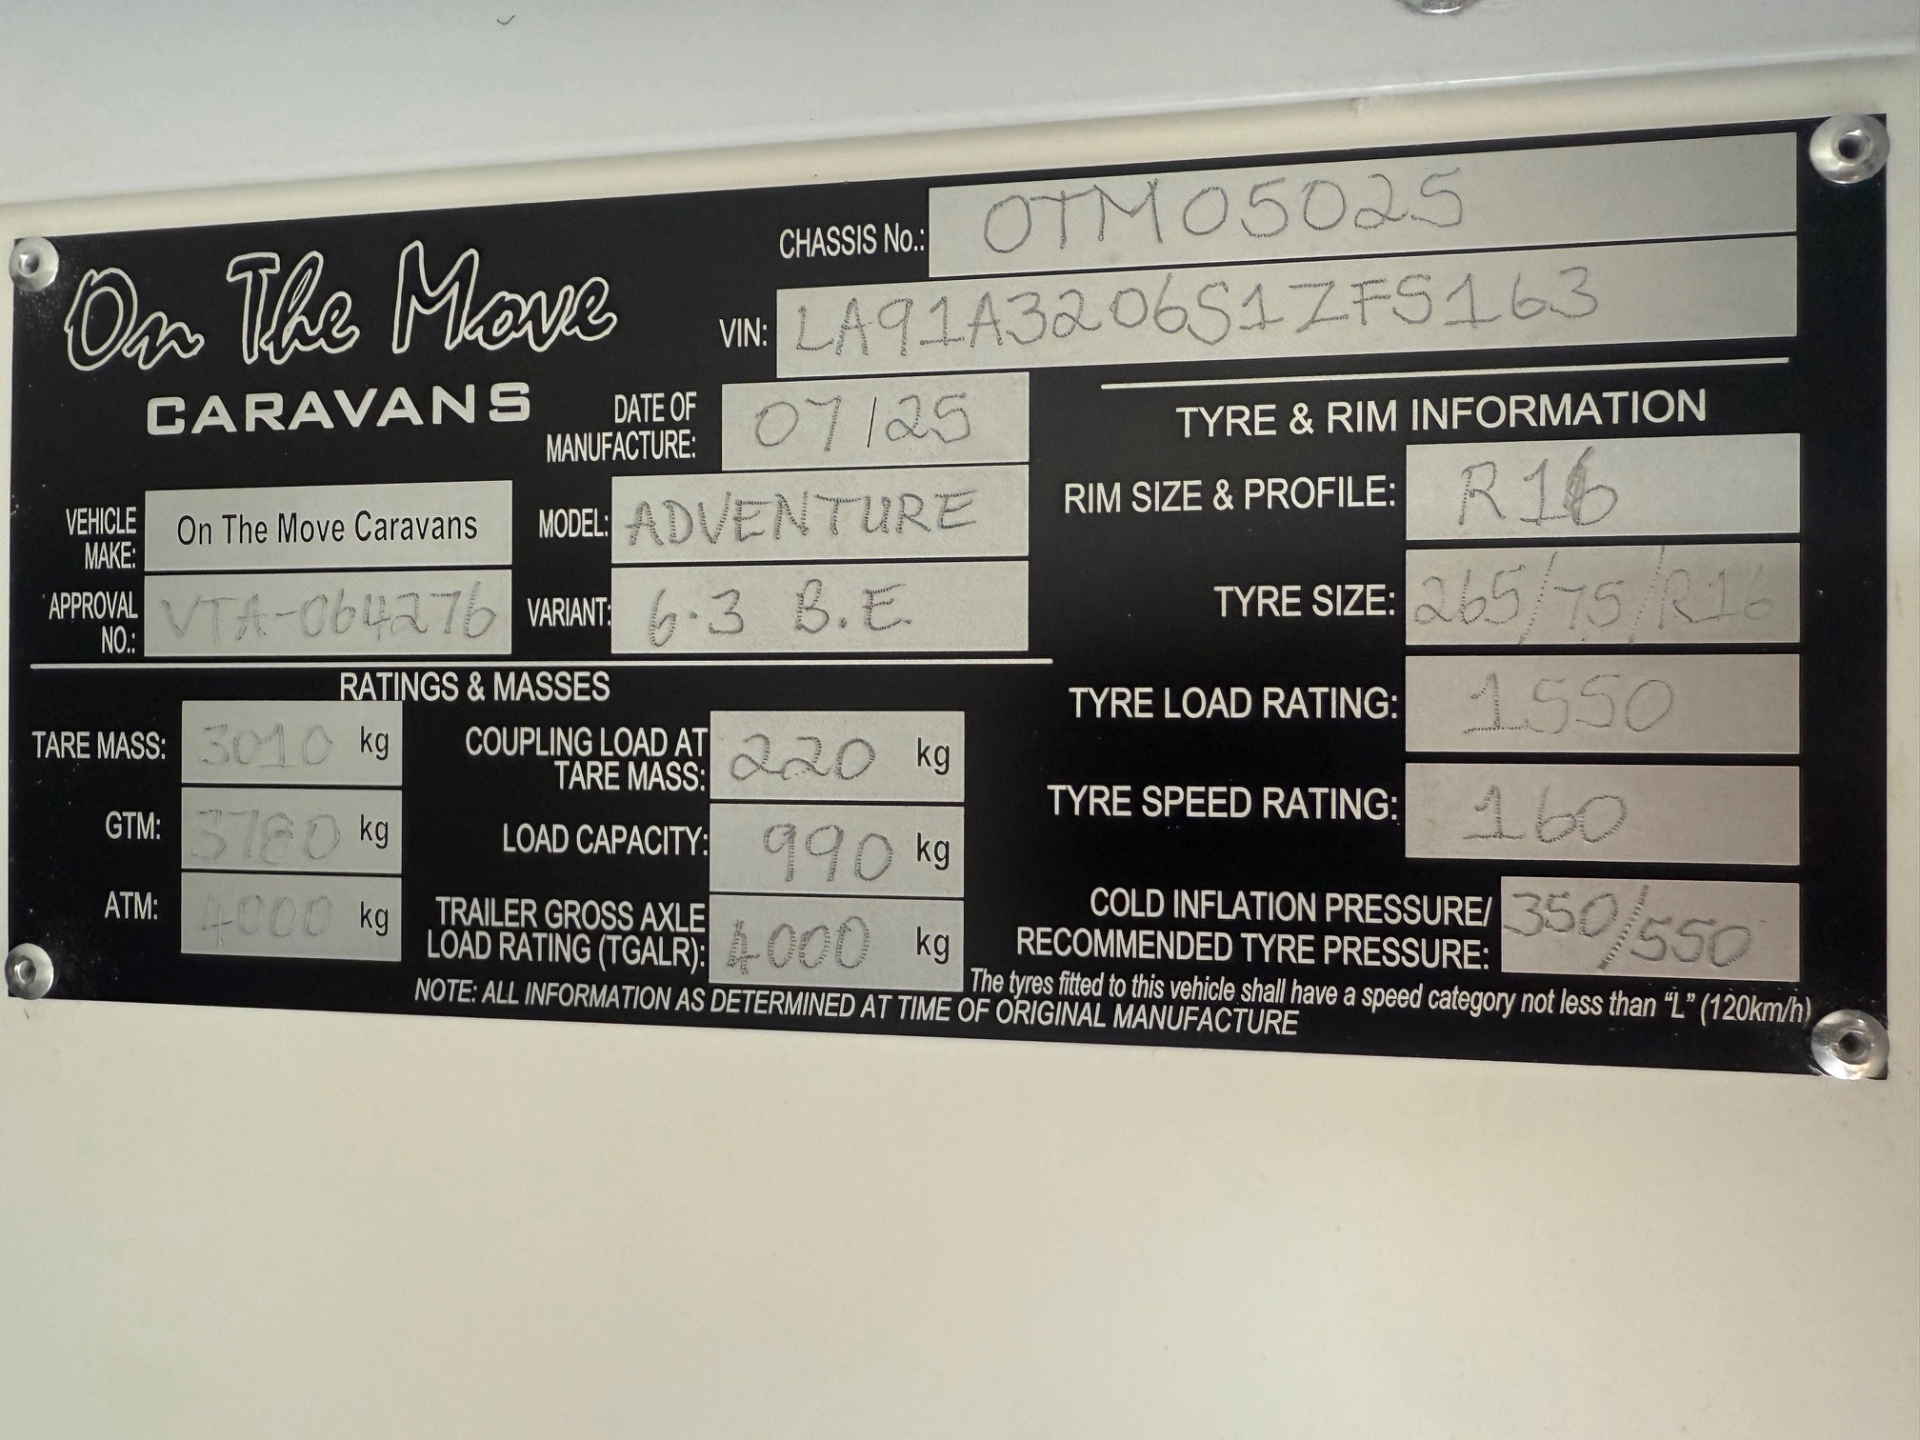 On The Move
CARAVANS
CHASSIS No.: OTM05025
VIN: LA91A3206S1ZFS163
DATE OF
MANUFACTURE: 07/25
VEHICLE
MAKE: On The Move Caravans
MODEL: ADVENTURE
APPROVAL
NO.: VTA-064276
VARIANT: 6.3 B.E.
RATINGS & MASSES
TARE MASS: 3010 kg
GTM: 3780 kg
ATM: 4000 kg
COUPLING LOAD AT
TARE MASS: 220 kg
LOAD CAPACITY: 990 kg
TRAILER GROSS AXLE
LOAD RATING (TGALR): 4000 kg
TYRE & RIM INFORMATION
RIM SIZE & PROFILE: R16
TYRE SIZE: 265/75/R16
TYRE LOAD RATING: 1550
TYRE SPEED RATING: 160
COLD INFLATION PRESSURE/
RECOMMENDED TYRE PRESSURE: 350/550
The tyres fitted to this vehicle shall have a speed category not less than "L" (120km/h)
NOTE: ALL INFORMATION AS DETERMINED AT TIME OF ORIGINAL MANUFACTURE